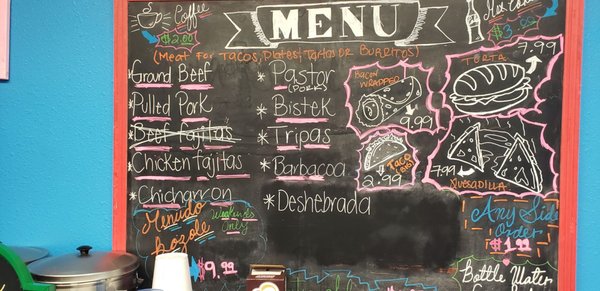 Coffee
$2.00
MENU
Mex Coke
$3.00
(Meat for Tacos, Plates, Tortas or Burritos)
*Ground Beef
*Pulled Pork
*Beef Fajitas
*Chicken Fajitas
*Chicharron
*Pastor
(Pork)
*Bistek
*Tripas
*Barbacoa
*Deshebrada
Bacon
Wrapped
9.99
Taco
2.99
Torta
7.99
7.99
Quesadilla
Menudo
Pozole
Weekends
Only
$9.99
Any Side
Order
$1.99
Bottle Water